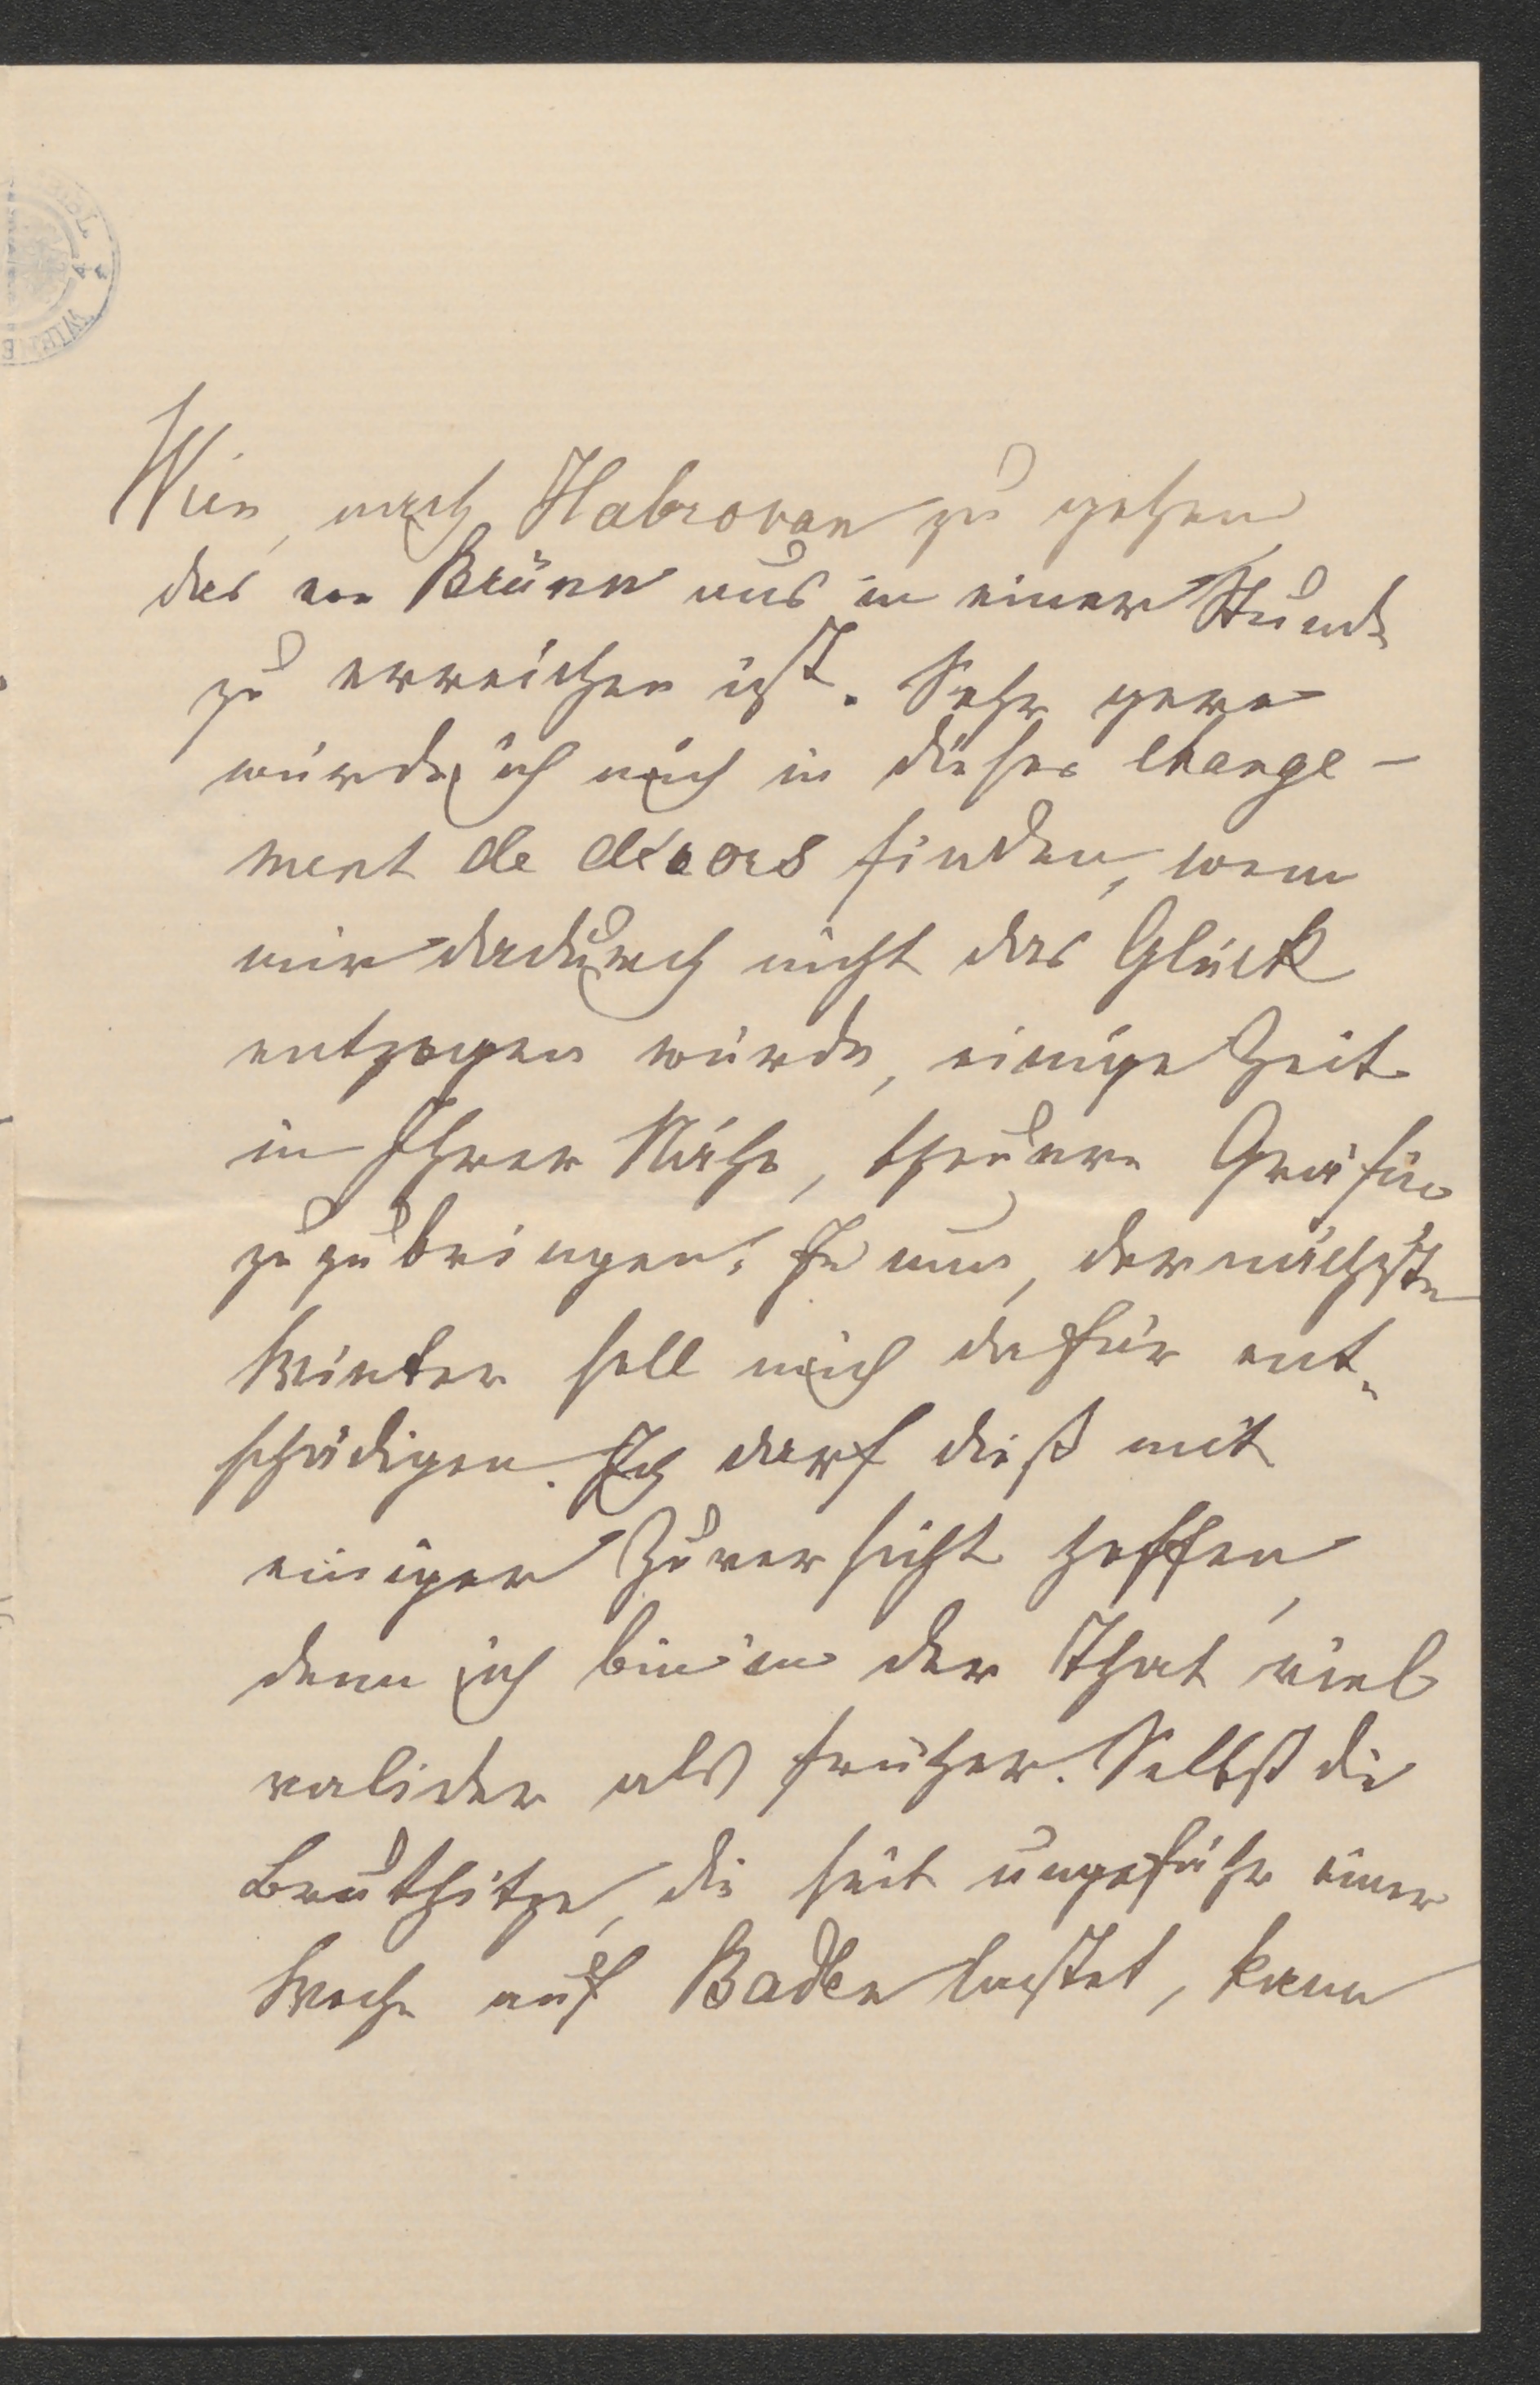 Wien, nach Habrovan zu gehen,
das von Brünn aus in einer Stunde
zu erreichen ist. Sehr gern
würde ich mich in dieses change-
ment de décors finden, wenn
mir dadurch nicht das Glück
entzogen würde, einige Zeit
in Ihrer Nähe, theuere Gräfin
zuzubringen. Je nun, der nächste
Winter soll mich dafür ent-
schädigen. Ich darf dieß mit
einiger Zuversicht hoffen,
denn ich bin in der That viel
valider als früher. Selbst die
Bruthitze, die seit ungefähr einer
Woche auf Baden lastet, kann
WIENER